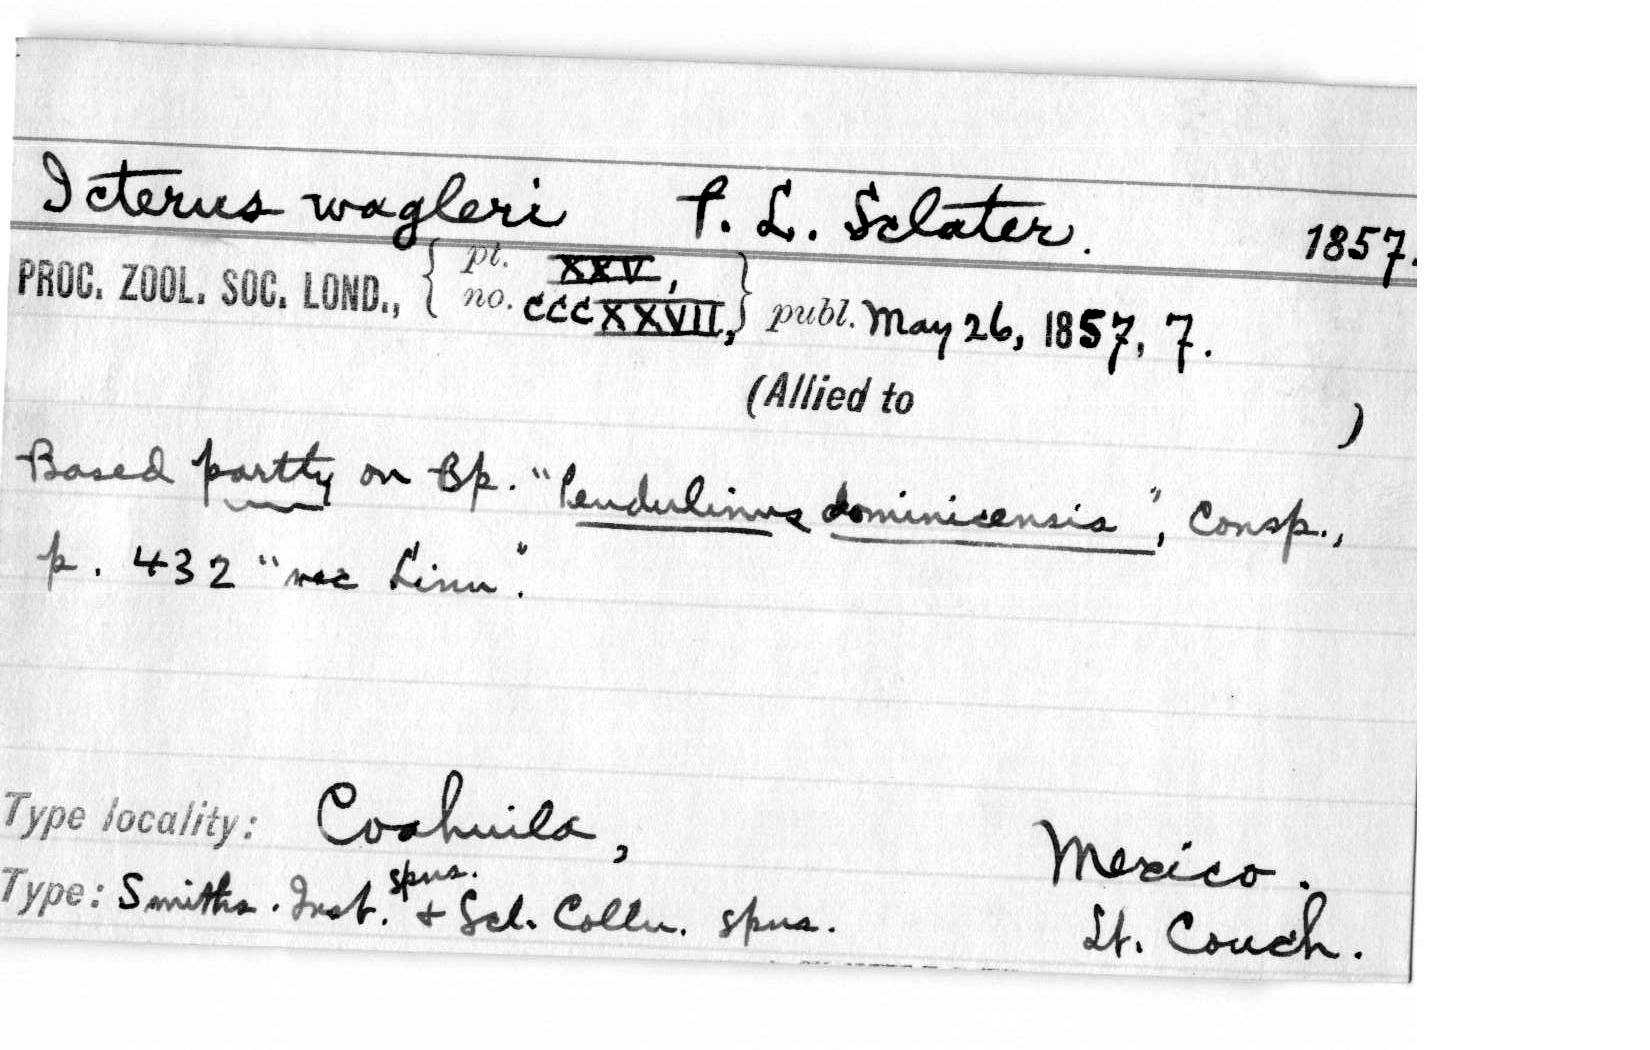 Icterus wagleri P. L. Sclater. 1857.
PROC. ZOOL. SOC. LOND., { pt. XXV, no. CCCXXVII, } publ. May 26, 1857, 7.
(Allied to )
Based partly on Bp. "Pendulinus dominicensis", Consp.,
p. 432 "nec Linn".
Type locality: Coahuila, Mexico.
Type: Smiths. Inst. spns. & Scl. Colln. spns. Lt. Couch.